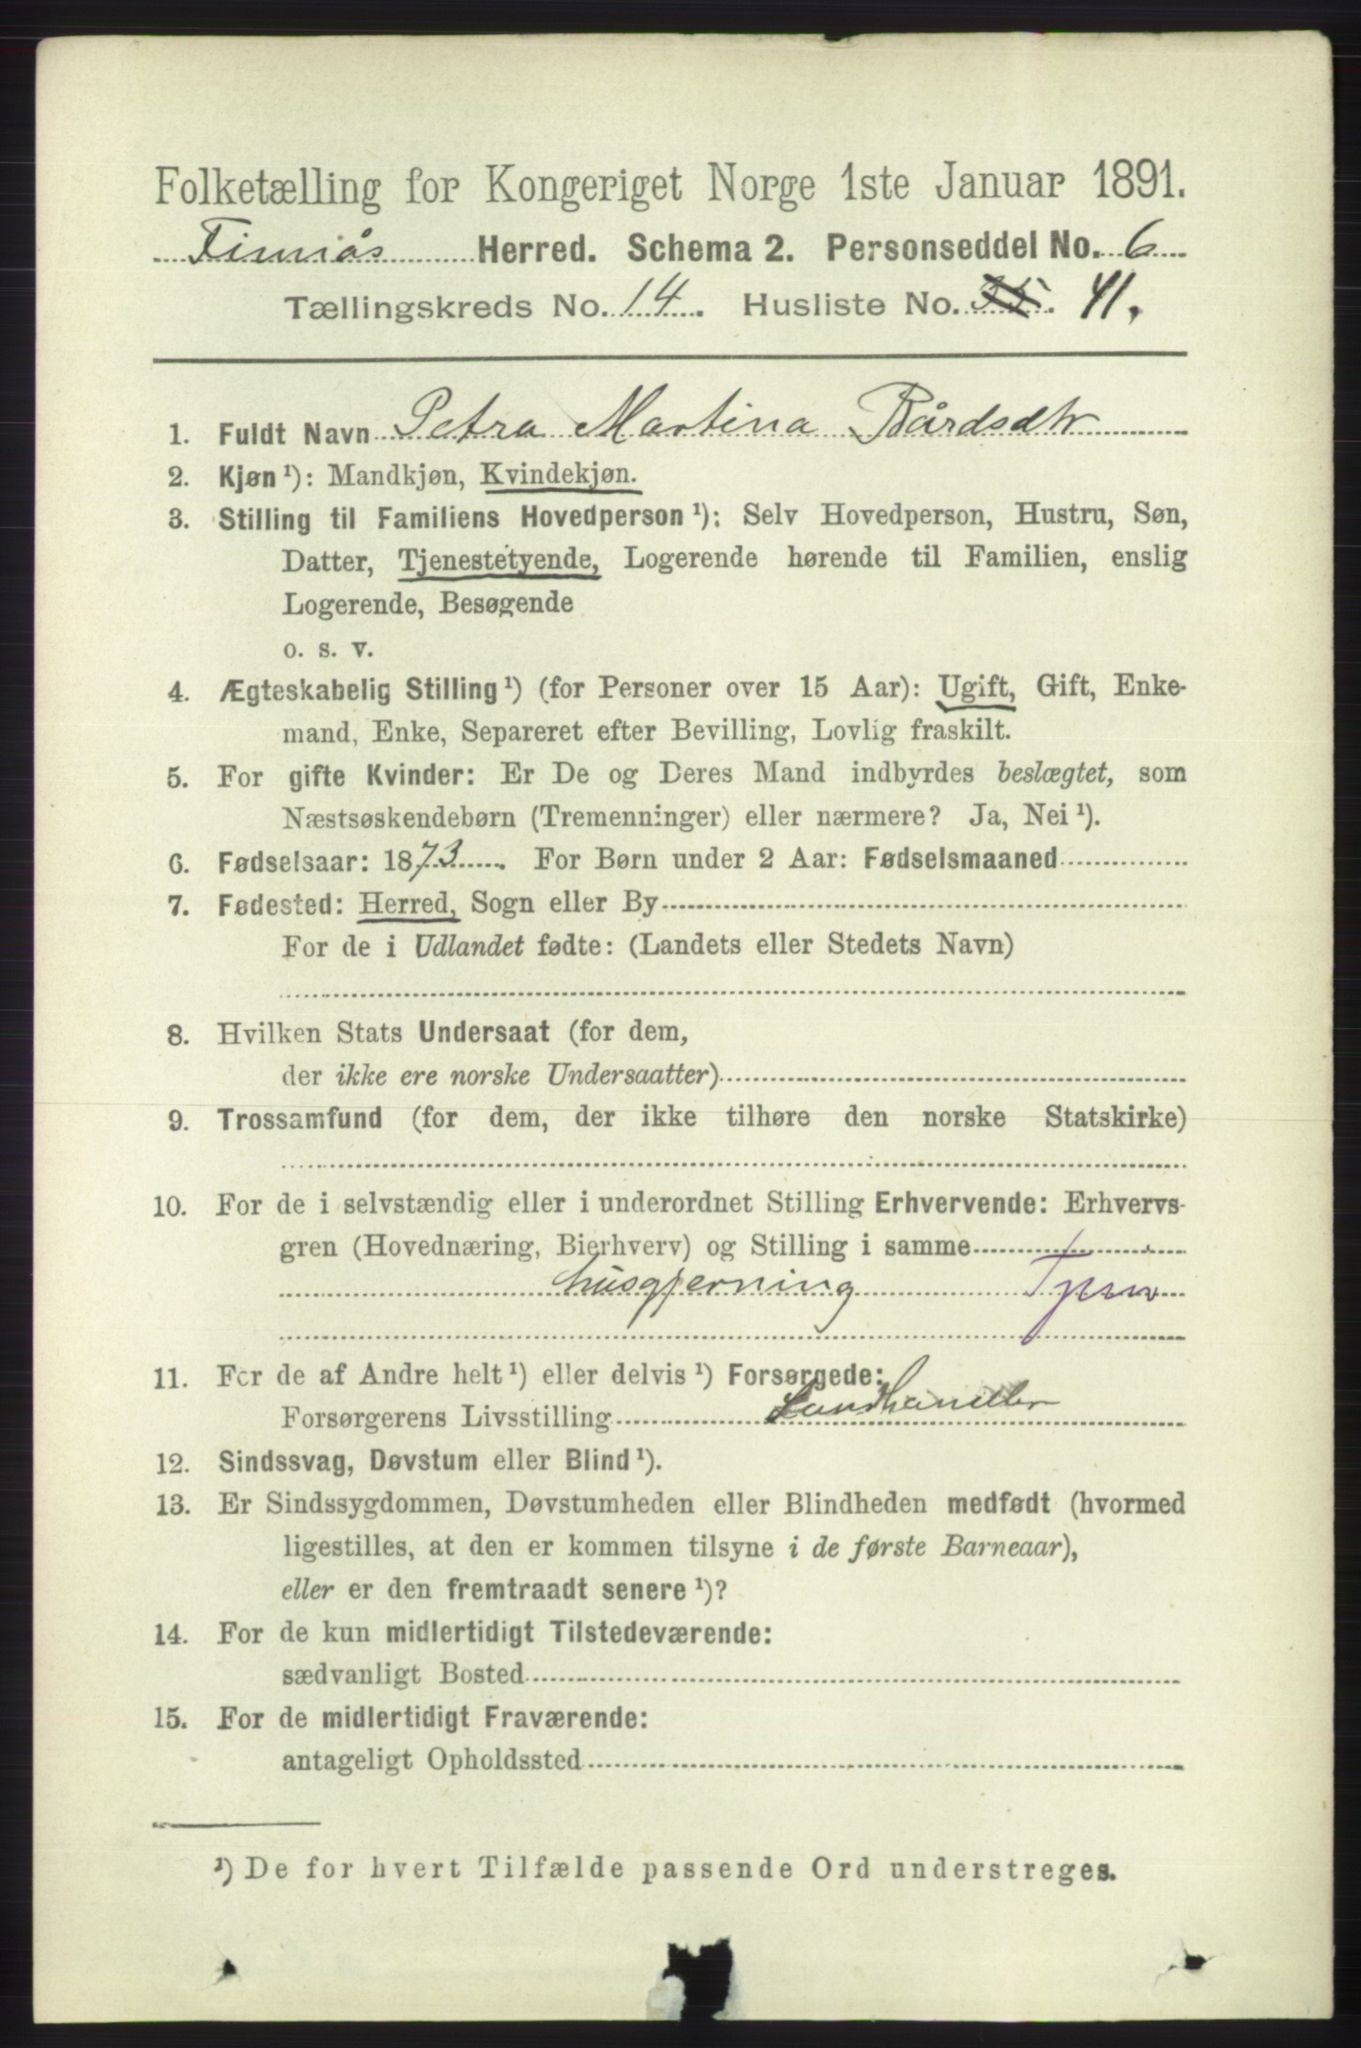 Folketælling for Kongeriget Norge 1ste Januar 1891.
Finnås Herred. Schema 2. Personseddel No. 6
Tællingskreds No. 14. Husliste No. 35. 41.
1. Fuldt Navn Petra Martina Bårdsdtr
2. Kjøn ¹): Mandkjøn, Kvindekjøn.
3. Stilling til Familiens Hovedperson ¹): Selv Hovedperson, Hustru, Søn,
Datter, Tjenestetyende, Logerende hørende til Familien, enslig
Logerende, Besøgende
o. s. v.
4. Ægteskabelig Stilling ¹) (for Personer over 15 Aar): Ugift, Gift, Enke-
mand, Enke, Separeret efter Bevilling, Lovlig fraskilt.
5. For gifte Kvinder: Er De og Deres Mand indbyrdes beslægtet, som
Næstsøskendebørn (Tremenninger) eller nærmere? Ja, Nei ¹).
6. Fødselsaar: 1873. For Børn under 2 Aar: Fødselsmaaned
7. Fødested: Herred, Sogn eller By
For de i Udlandet fødte: (Landets eller Stedets Navn)
8. Hvilken Stats Undersaat (for dem,
der ikke ere norske Undersaatter)
9. Trossamfund (for dem, der ikke tilhøre den norske Statskirke)
10. For de i selvstændig eller i underordnet Stilling Erhvervende: Erhvervs-
gren (Hovednæring, Bierhverv) og Stilling i samme
husgjerning
11. For de af Andre helt ¹) eller delvis ¹) Forsørgede:
Forsørgerens Livsstilling Landhandler
12. Sindssvag, Døvstum eller Blind ¹).
13. Er Sindssygdommen, Døvstumheden eller Blindheden medfødt (hvormed
ligestilles, at den er kommen tilsyne i de første Barneaar),
eller er den fremtraadt senere ¹)?
14. For de kun midlertidigt Tilstedeværende:
sædvanligt Bosted
15. For de midlertidigt Fraværende:
antageligt Opholdssted
¹) De for hvert Tilfælde passende Ord understreges.